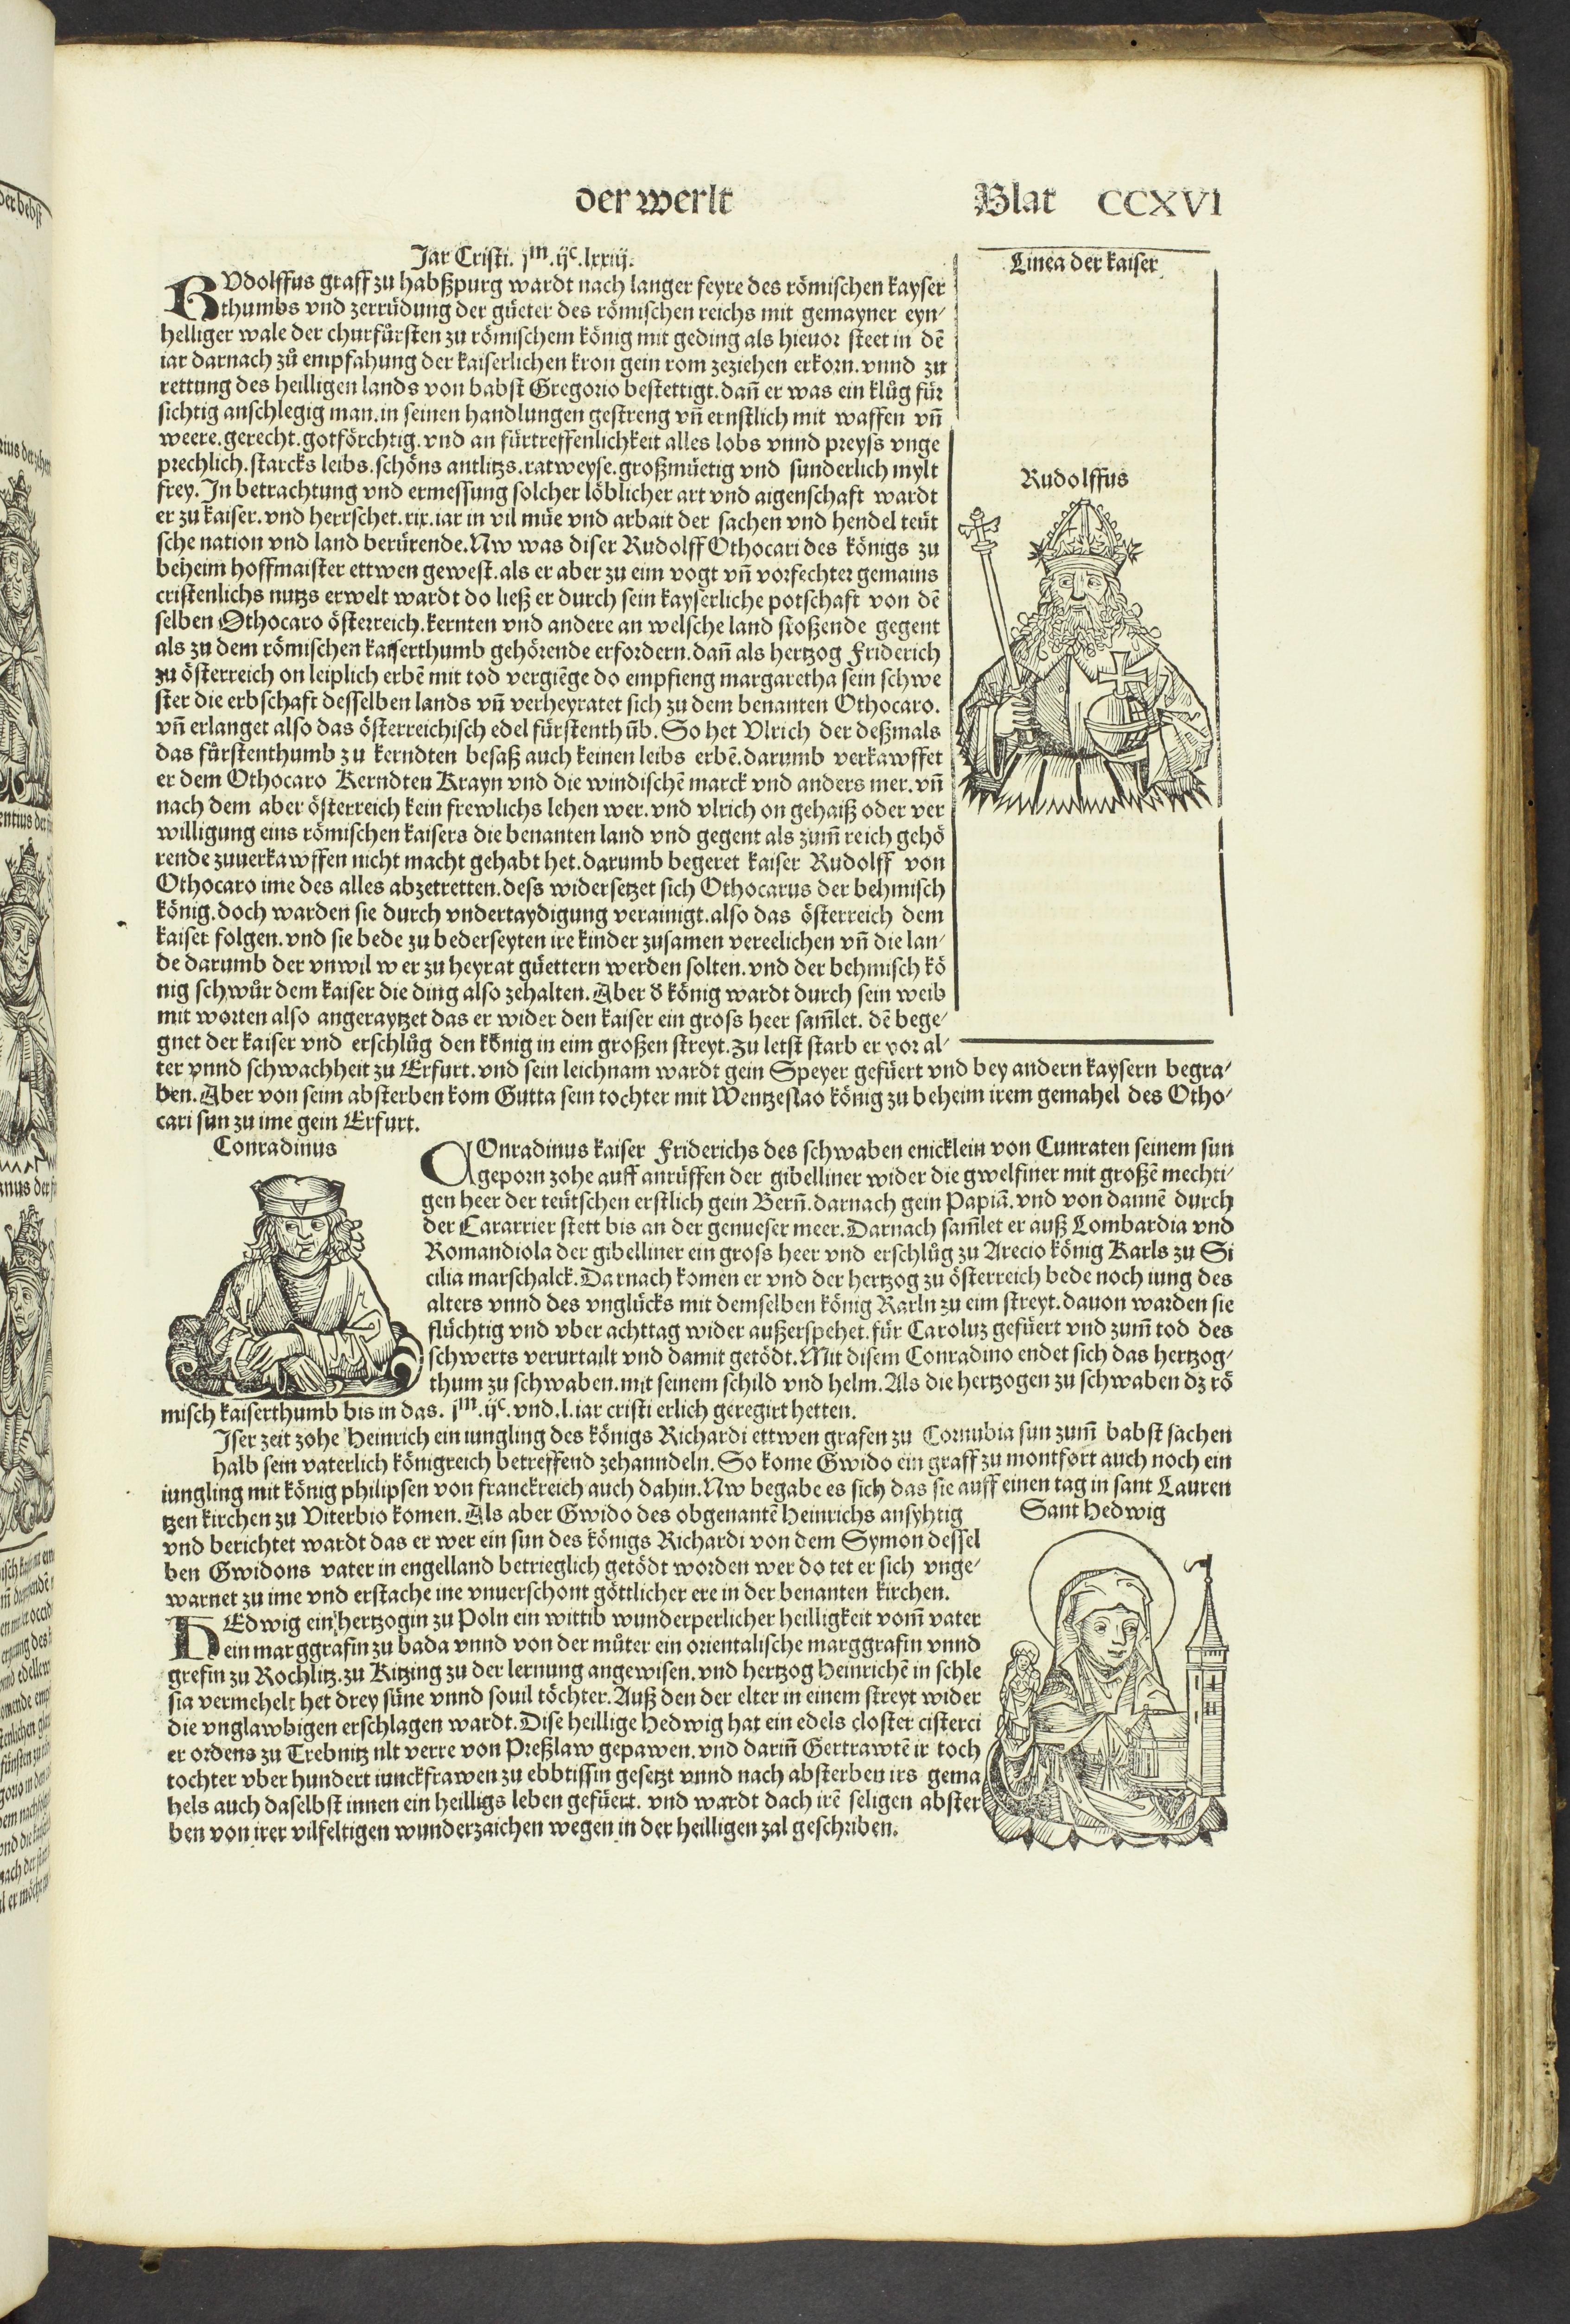 der werlt
Blat CCXVI
Jar Cristi. jᵐ.ijᶜ.lxxiij.
Linea der kaiser
RVdolffus graff zu habßpurg wardt nach langer feyre des römischen kayser
thumbs vnd zerrüdung der güeter des römischen reichs mit gemayner eyn-
helliger wale der churfůrsten zu römischem könig mit geding als hieuor steet in dē
iar darnach zů empfahung der kaiserlichen kron gein rom zeziehen erkorn. vnnd zu
rettung des heilligen lands von babst Gregorio bestettigt. dañ er was ein klůg für
sichtig anschlegig man. in seinen handlungen gestreng vñ ernstlich mit waffen vñ
weere. gerecht. gotförchtig. vnd an fürtreffenlichkeit alles lobs vnnd preyss vnge
prechlich. starcks leibs. schöns antlitzs. ratweyse. großmüetig vnd sunderlich mylt
frey. In betrachtung vnd ermessung solcher löblicher art vnd aigenschaft wardt
er zu kaiser. vnd herrschet. xix. iar in vil müe vnd arbait der sachen vnd hendel teüt
sche nation vnd land berürende. Nw was diser Rudolff Othocari des königs zu
beheim hoffmaister ettwen gewest. als er aber zu eim vogt vñ vorfechter gemains
cristenlichs nutzs erwelt wardt do ließ er durch sein kayserliche potschaft von dē
selben Othocaro österreich. kernten vnd andere an welsche land stoßende gegent
als zu dem römischen kaiserthumb gehörende erfordern. dañ als hertzog Friderich
zu österreich on leiplich erbē mit tod vergiēge do empfieng margaretha sein schwe
ster die erbschaft desselben lands vñ verheyratet sich zu dem benanten Othocaro.
vñ erlanget also das österreichisch edel fürstenthūb. So het Vlrich der deßmals
das fůrstenthumb zu kerndten besaß auch keinen leibs erbē. darumb verkawffet
er dem Othocaro Kerndten Krayn vnd die windischē marck vnd anders mer. vñ
nach dem aber österreich kein frewlichs lehen wer. vnd vlrich on gehaiß oder ver
willigung eins römischen kaisers die benanten land vnd gegent als zum̄ reich gehö
rende zuuerkawffen nicht macht gehabt het. darumb begeret kaiser Rudolff von
Othocaro ime des alles abzetretten. dess widersetzet sich Othocarus der behmisch
könig. doch warden sie durch vndertaydigung verainigt. also das österreich dem
kaiser folgen. vnd sie bede zu bederseyten ire kinder zusamen vereelichen vñ die lan-
de darumb der vnwil wer zu heyrat güettern werden solten. vnd der behmisch kö
nig schwůr dem kaiser die ding also zehalten. Aber d̓ könig wardt durch sein weib
mit worten also angeraytzet das er wider den kaiser ein gross heer sam̄let. dē bege-
gnet der kaiser vnd erschlůg den kōnig in eim großen streyt. Zu letst starb er vor al-
ter vnnd schwachheit zu Erfurt. vnd sein leichnam wardt gein Speyer gefüert vnd bey andern kaysern begra-
ben. Aber von seim absterben kom Gutta sein tochter mit Wentzeslao könig zu beheim irem gemahel des Otho-
cari sun zu ime gein Erfurt.
Rudolffus
Conradinus
COnradinus kaiser Friderichs des schwaben enicklein von Cunraten seinem sun
geporn zohe auff anrüffen der gibelliner wider die gwelfiner mit großē mechti-
gen heer der teütschen erstlich gein Berñ. darnach gein Papiā. vnd von dannē durch
der Cararrier stett bis an der genueser meer. Darnach sam̄let er auß Lombardia vnd
Romandiola der gibelliner ein gross heer vnd erschlůg zu Arecio könig Karls zu Si
cilia marschalck. Darnach komen er vnd der hertzog zu österreich bede noch iung des
alters vnnd des vnglücks mit demselben könig Karln zu eim streyt. dauon warden sie
flüchtig vnd vber achttag wider außerspehet. für Caroluz gefüert vnd zum̄ tod des
schwerts verurtailt vnd damit getödt. Mit disem Conradino endet sich das hertzog-
thum zu schwaben. mit seinem schild vnd helm. Als die hertzogen zu schwaben dz rö
misch kaiserthumb bis in das. jᵐ.ijᶜ. vnd. l. iar cristi erlich geregirt hetten.
Iser zeit zohe Heinrich ein iungling des königs Richardi ettwen grafen zu Cornubia sun zum̄ babst sachen
halb sein vaterlich königreich betreffend zehanndeln. So kome Gwido ein graff zu montfort auch noch ein
iungling mit könig philipsen von franckreich auch dahin. Nw begabe es sich das sie auff einen tag in sant Lauren
tzen kirchen zu Viterbio komen. Als aber Gwido des obgenantē Heinrichs ansyhtig
vnd berichtet wardt das er wer ein sun des königs Richardi von dem Symon dessel
ben Gwidons vater in engelland betrieglich getödt worden wer do tet er sich vnge-
warnet zu ime vnd erstache ine vnuerschont göttlicher ere in der benanten kirchen.
Sant Hedwig
HEdwig ein hertzogin zu Poln ein wittib wunderperlicher heilligkeit vom̄ vater
ein marggrafin zu bada vnnd von der můter ein orientalische marggrafin vnnd
grefin zu Rochlitz. zu Kitzing zu der lernung angewisen. vnd hertzog Heinrichē in schle
sia vermehelt het drey süne vnnd souil töchter. Auß den der elter in einem streyt wider
die vnglawbigen erschlagen wardt. Dise heillige Hedwig hat ein edels closter cisterci
er ordens zu Trebnitz nit verre von Preßlaw gepawen. vnd darin̄ Gertrawtē ir toch
tochter vber hundert iunckfrawen zu ebbtissin gesetzt vnnd nach absterben irs gema
hels auch daselbst innen ein heilligs leben gefüert. vnd wardt dach irē seligen abster
ben von irer vilfeltigen wunderzaichen wegen in der heilligen zal geschriben.